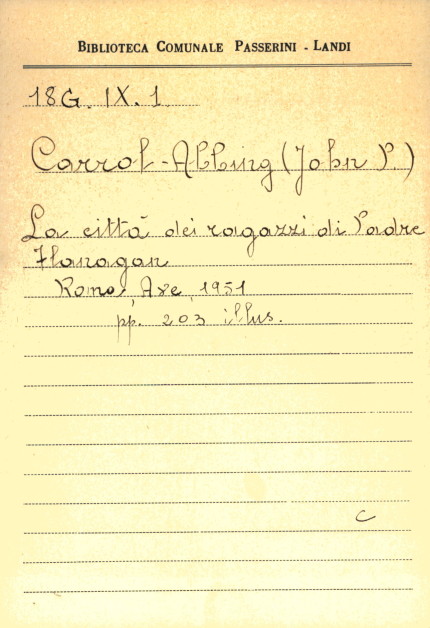 BIBLIOTECA COMUNALE PASSERINI - LANDI
18G. IX. 1.
Carrol-Abbing (John P.)
La città dei ragazzi di Padre
Flanagan
Roma, Ave, 1951
pp. 203 illus.
C